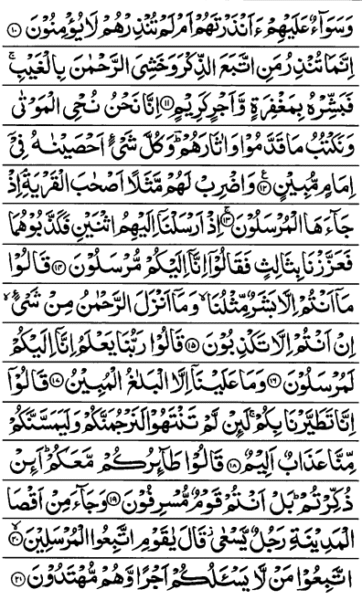 وَسَوَآءٌ عَلَيْهِمْ ءَاَنْذَرْتَهُمْ اَمْ لَمْ تُنْذِرْهُمْ لَا يُؤْمِنُوْنَ ۝۱۰
اِنَّمَا تُنْذِرُ مَنِ اتَّبَعَ الذِّكْرَ وَخَشِيَ الرَّحْمٰنَ بِالْغَيْبِ ۚ
فَبَشِّرْهُ بِمَغْفِرَةٍ وَّاَجْرٍ كَرِيْمٍ ۝۱۱ اِنَّا نَحْنُ نُحْيِ الْمَوْتٰى
وَنَكْتُبُ مَا قَدَّمُوْا وَاٰثَارَهُمْ ؕ وَكُلَّ شَيْءٍ اَحْصَيْنٰهُ فِيْٓ
اِمَامٍ مُّبِيْنٍ ۝۱۲ وَاضْرِبْ لَهُمْ مَّثَلًا اَصْحٰبَ الْقَرْيَةِ ۘ اِذْ
جَآءَهَا الْمُرْسَلُوْنَ ۝۱۳ اِذْ اَرْسَلْنَآ اِلَيْهِمُ اثْنَيْنِ فَكَذَّبُوْهُمَا
فَعَزَّزْنَا بِثَالِثٍ فَقَالُوْٓا اِنَّآ اِلَيْكُمْ مُّرْسَلُوْنَ ۝۱۴ قَالُوْا
مَآ اَنْتُمْ اِلَّا بَشَرٌ مِّثْلُنَا ۙ وَمَآ اَنْزَلَ الرَّحْمٰنُ مِنْ شَيْءٍ ۙ
اِنْ اَنْتُمْ اِلَّا تَكْذِبُوْنَ ۝۱۵ قَالُوْا رَبُّنَا يَعْلَمُ اِنَّآ اِلَيْكُمْ
لَمُرْسَلُوْنَ ۝۱۶ وَمَا عَلَيْنَآ اِلَّا الْبَلٰغُ الْمُبِيْنُ ۝۱۷ قَالُوْٓا
اِنَّا تَطَيَّرْنَا بِكُمْ ۚ لَئِنْ لَّمْ تَنْتَهُوْا لَنَرْجُمَنَّكُمْ وَلَيَمَسَّنَّكُمْ
مِّنَّا عَذَابٌ اَلِيْمٌ ۝۱۸ قَالُوْا طَآئِرُكُمْ مَّعَكُمْ ؕ اَئِنْ
ذُكِّرْتُمْ ؕ بَلْ اَنْتُمْ قَوْمٌ مُّسْرِفُوْنَ ۝۱۹ وَجَآءَ مِنْ اَقْصَا
الْمَدِيْنَةِ رَجُلٌ يَّسْعٰى قَالَ يٰقَوْمِ اتَّبِعُوا الْمُرْسَلِيْنَ ۝۲۰
اتَّبِعُوْا مَنْ لَّا يَسْـَٔلُكُمْ اَجْرًا وَّهُمْ مُّهْتَدُوْنَ ۝۲۱